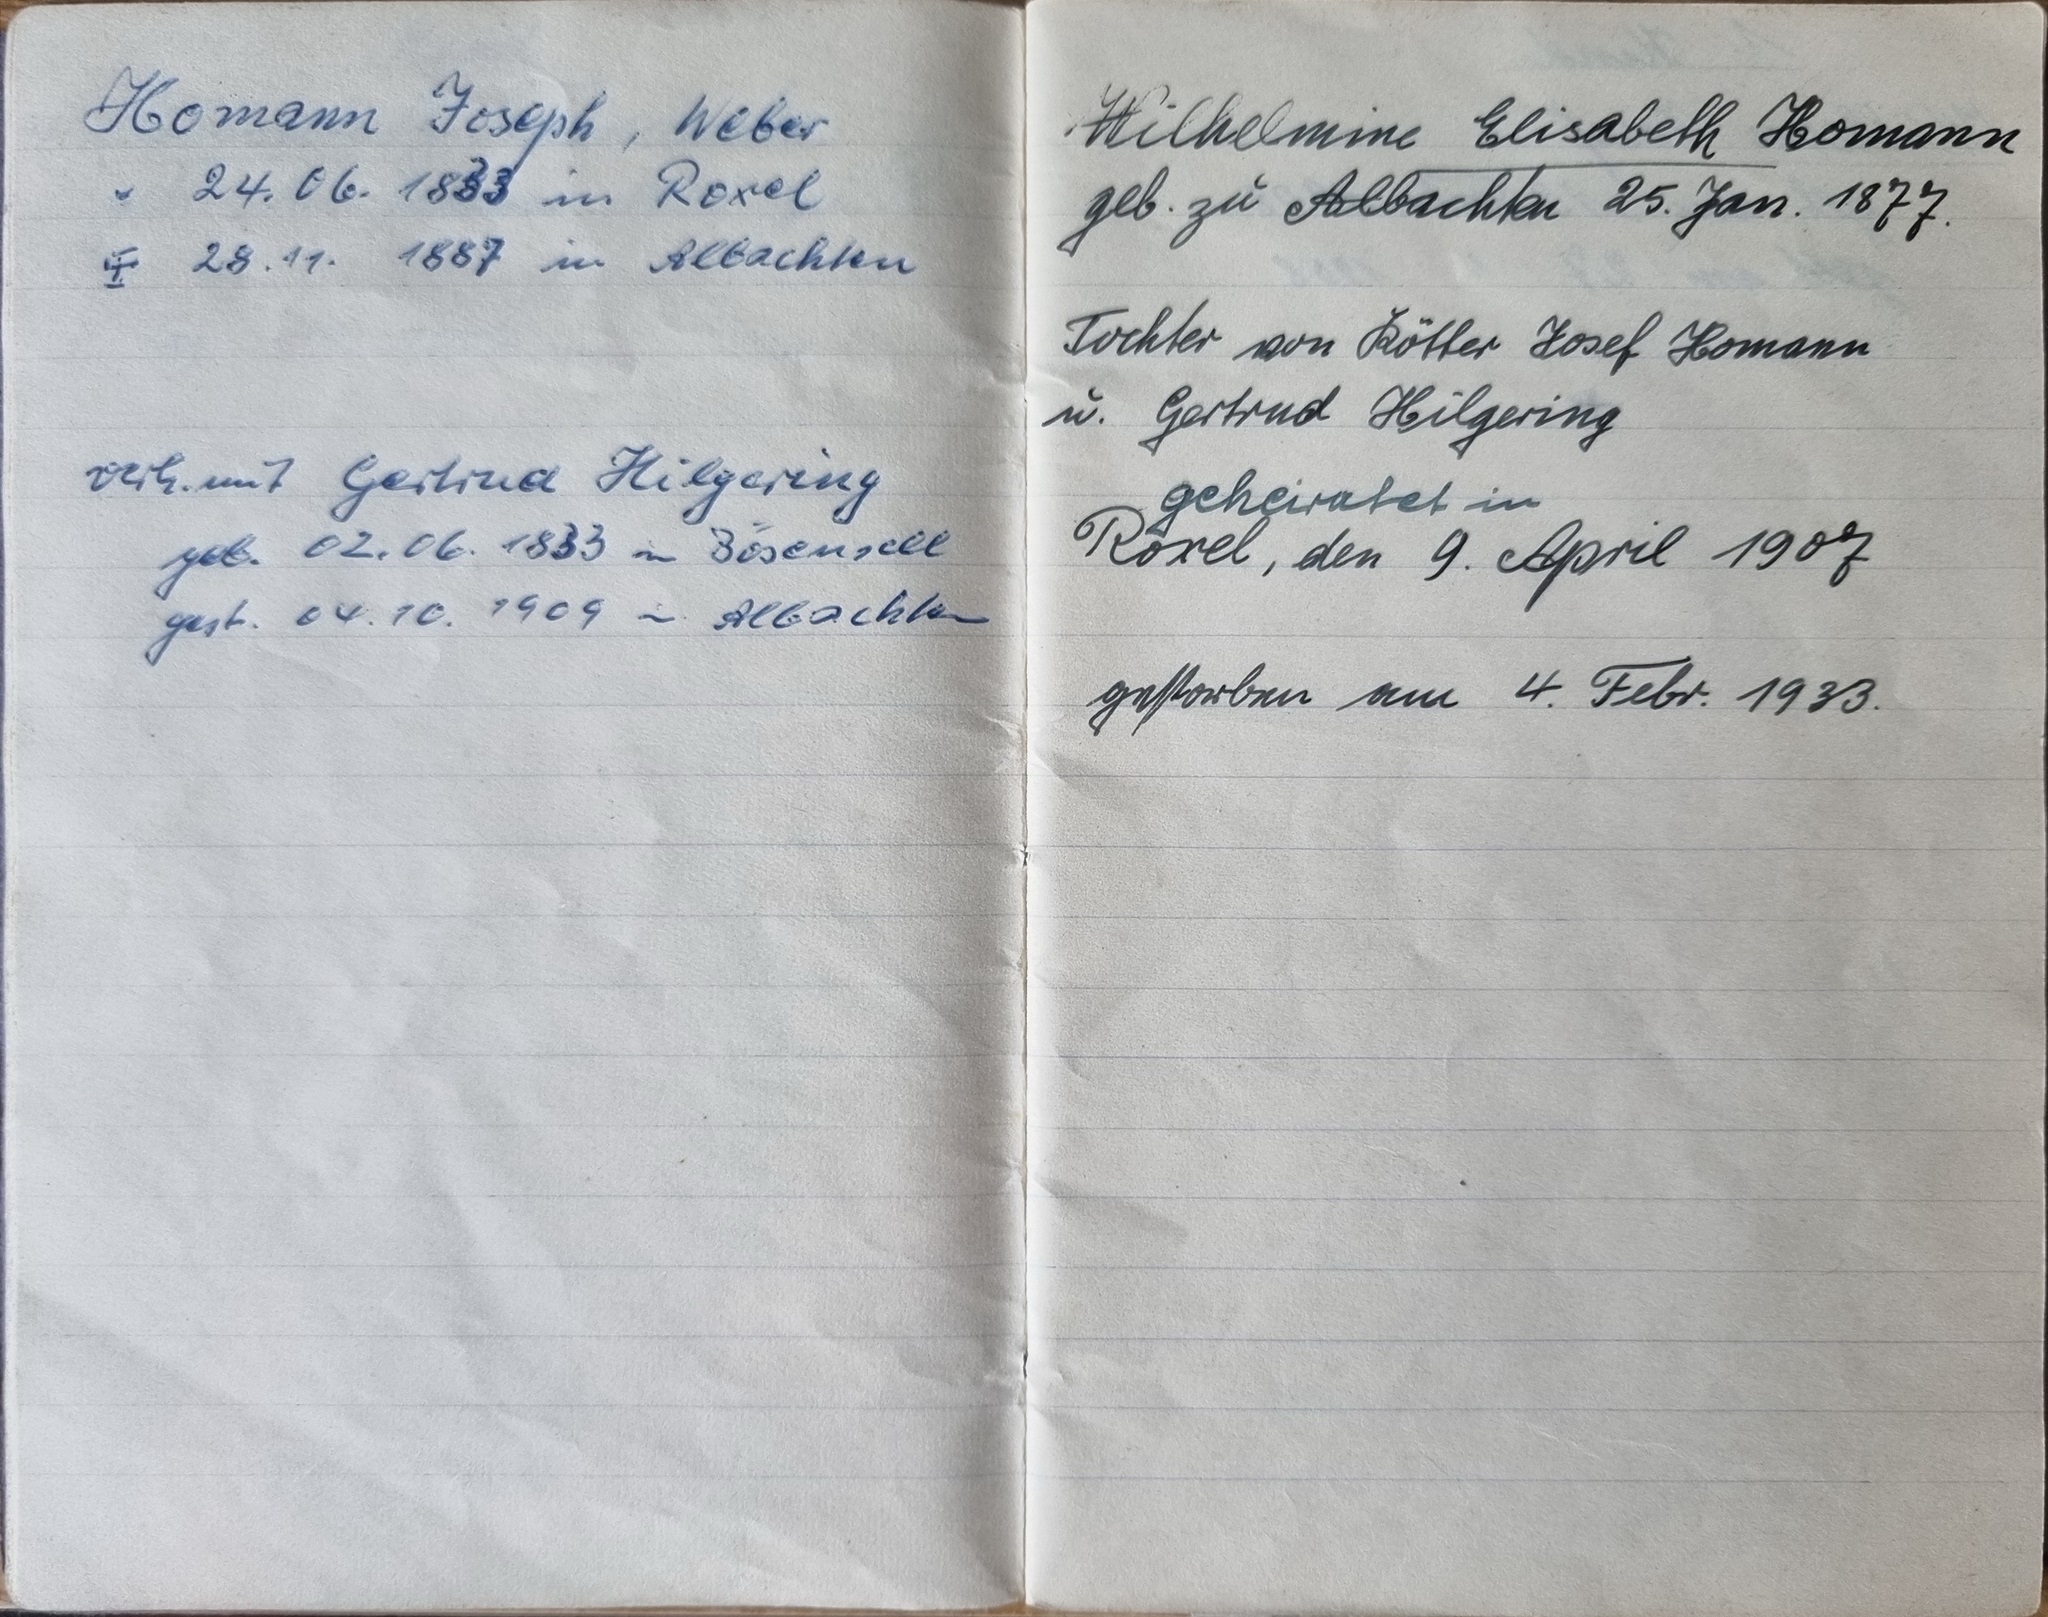 Homann Joseph, Weber
* 24.06.1833 in Roxel
28.11. 1887 in Albachten
verh. mit Gertrud Hilgering
geb. 02.06.1833 in Bösensell
gest. 04.10.1909 in Albachten
Wilhelmine Elisabeth Homann
geb. zu Albachten 25. Jan. 1877.
Tochter von Kötter Josef Homann
u. Gertrud Hilgering
geheiratet in
Roxel, den 9. April 1907
gestorben am 4. Febr. 1933.